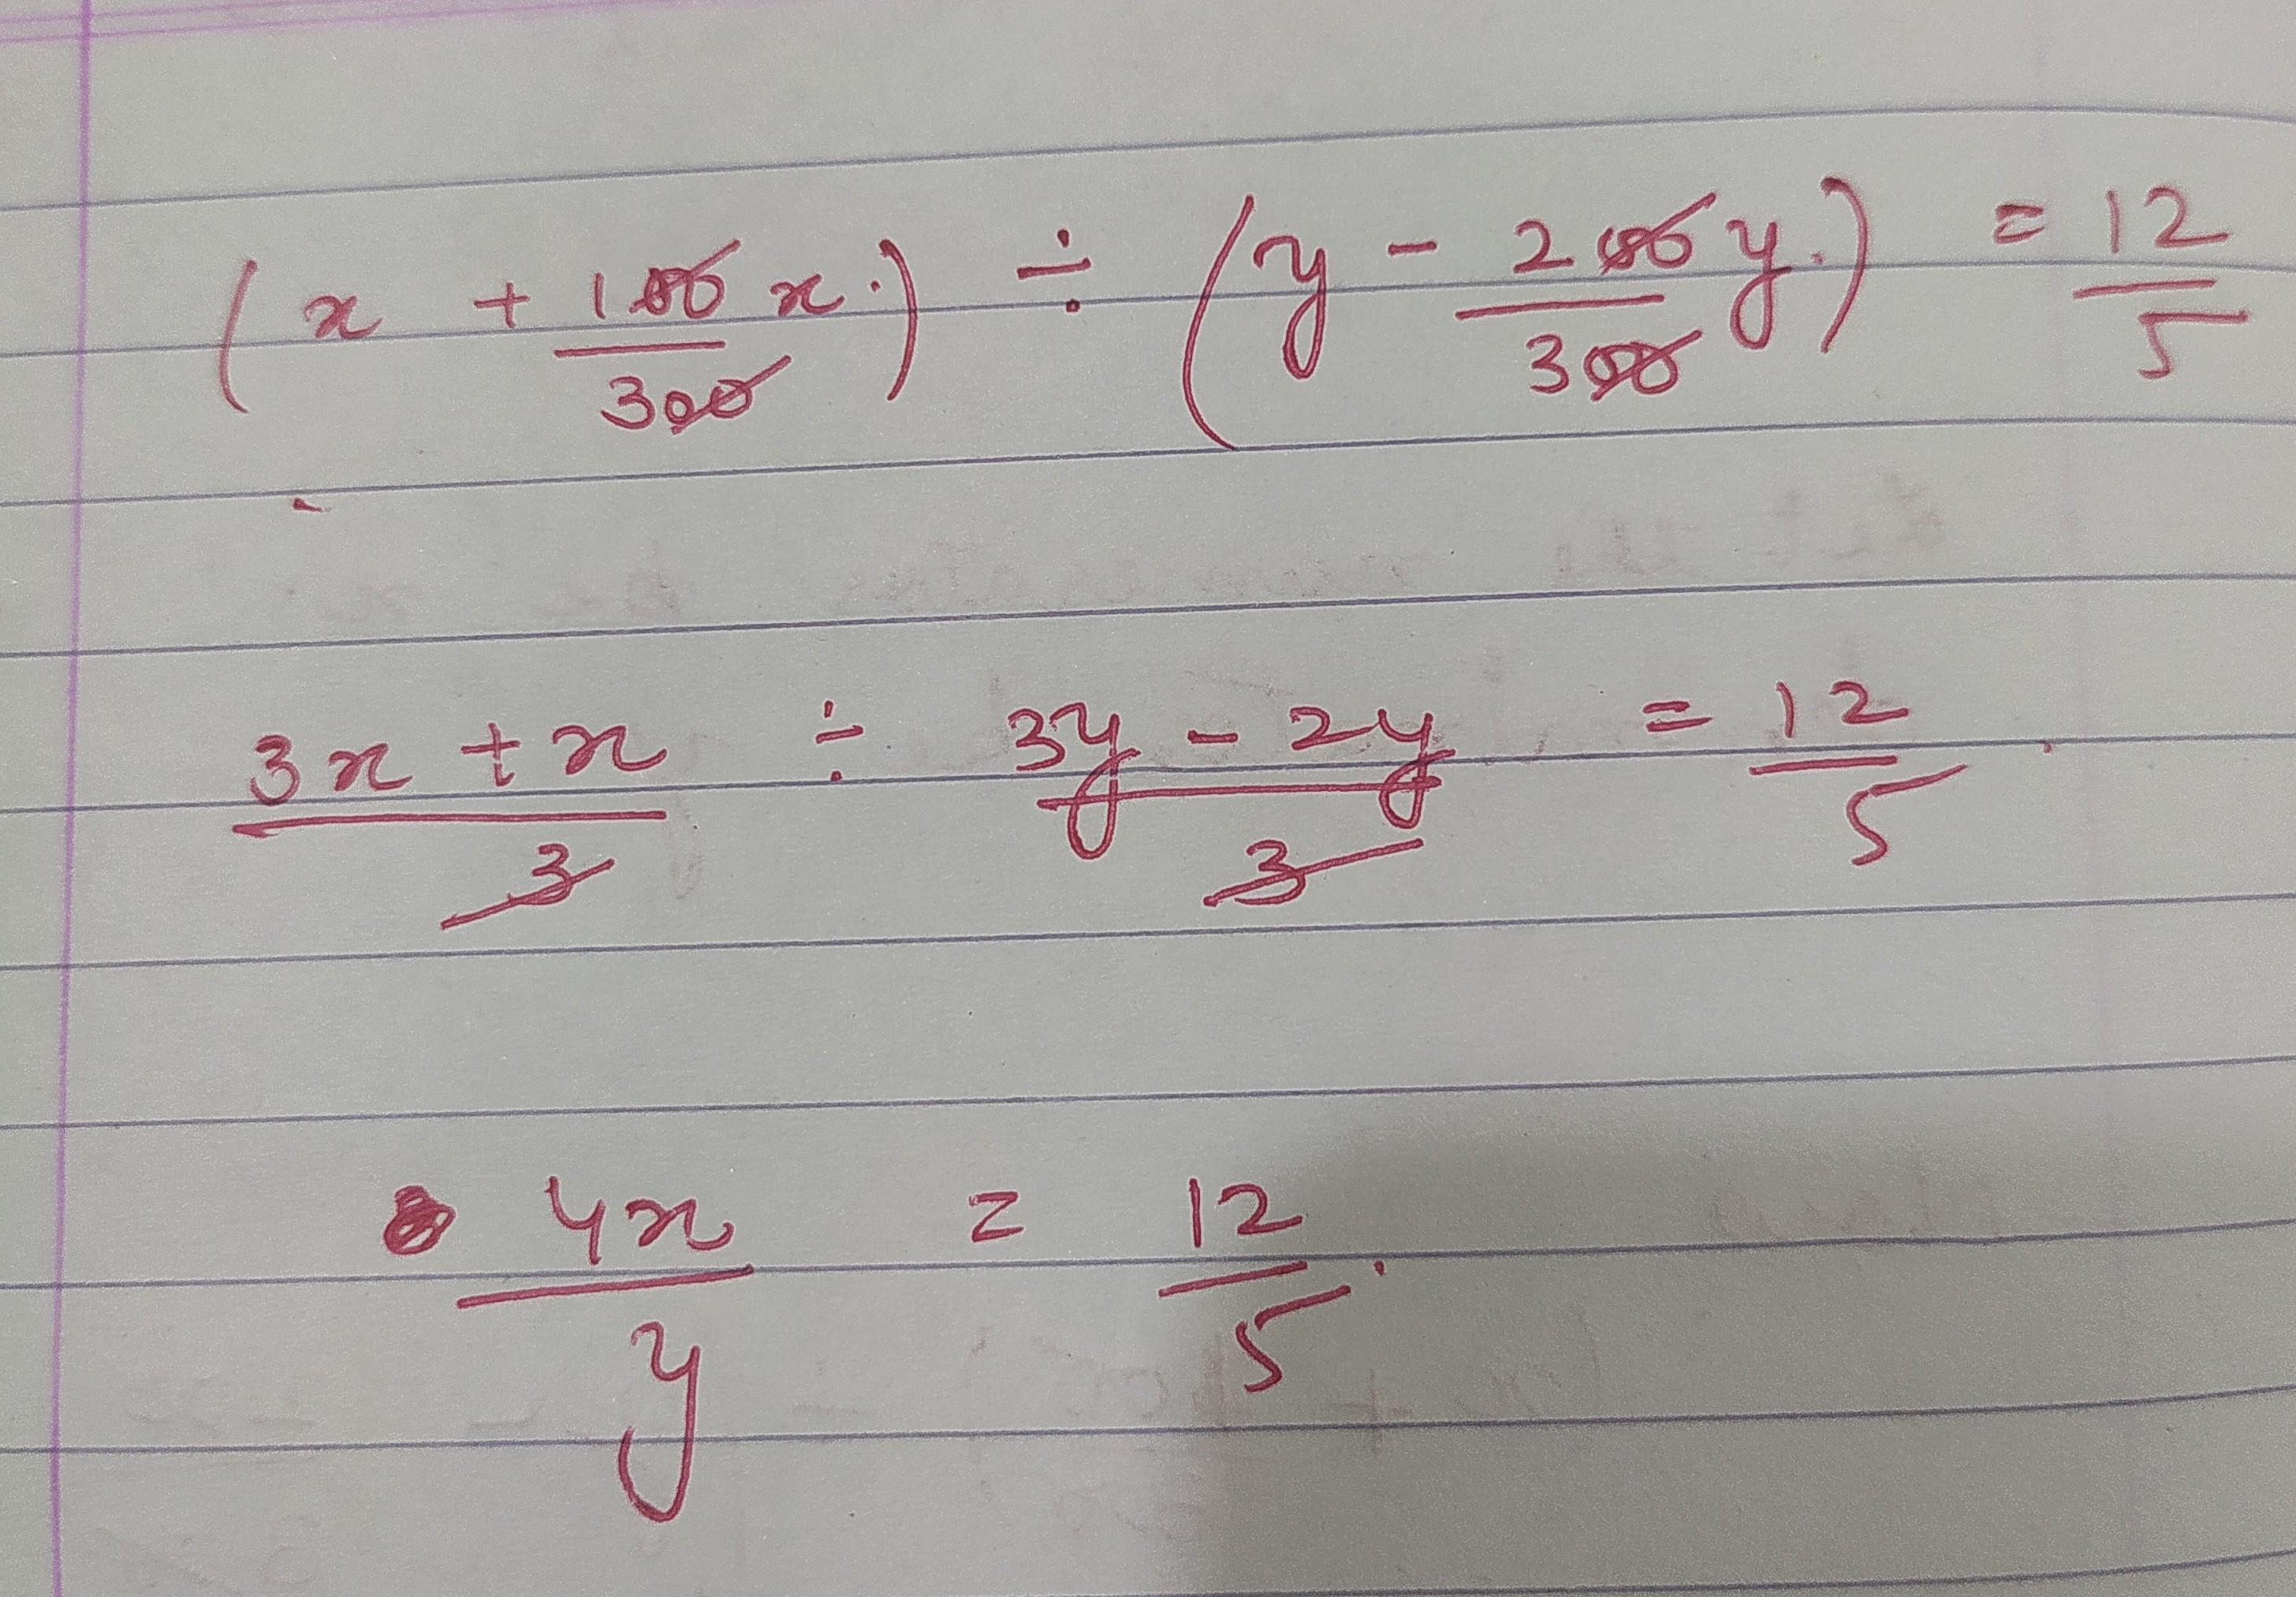 (x + 100/300 x.) ÷ (y - 200/300 y.) = 12/5
3x + x/3 ÷ 3y - 2y/3 = 12/5.
4x/y = 12/5.